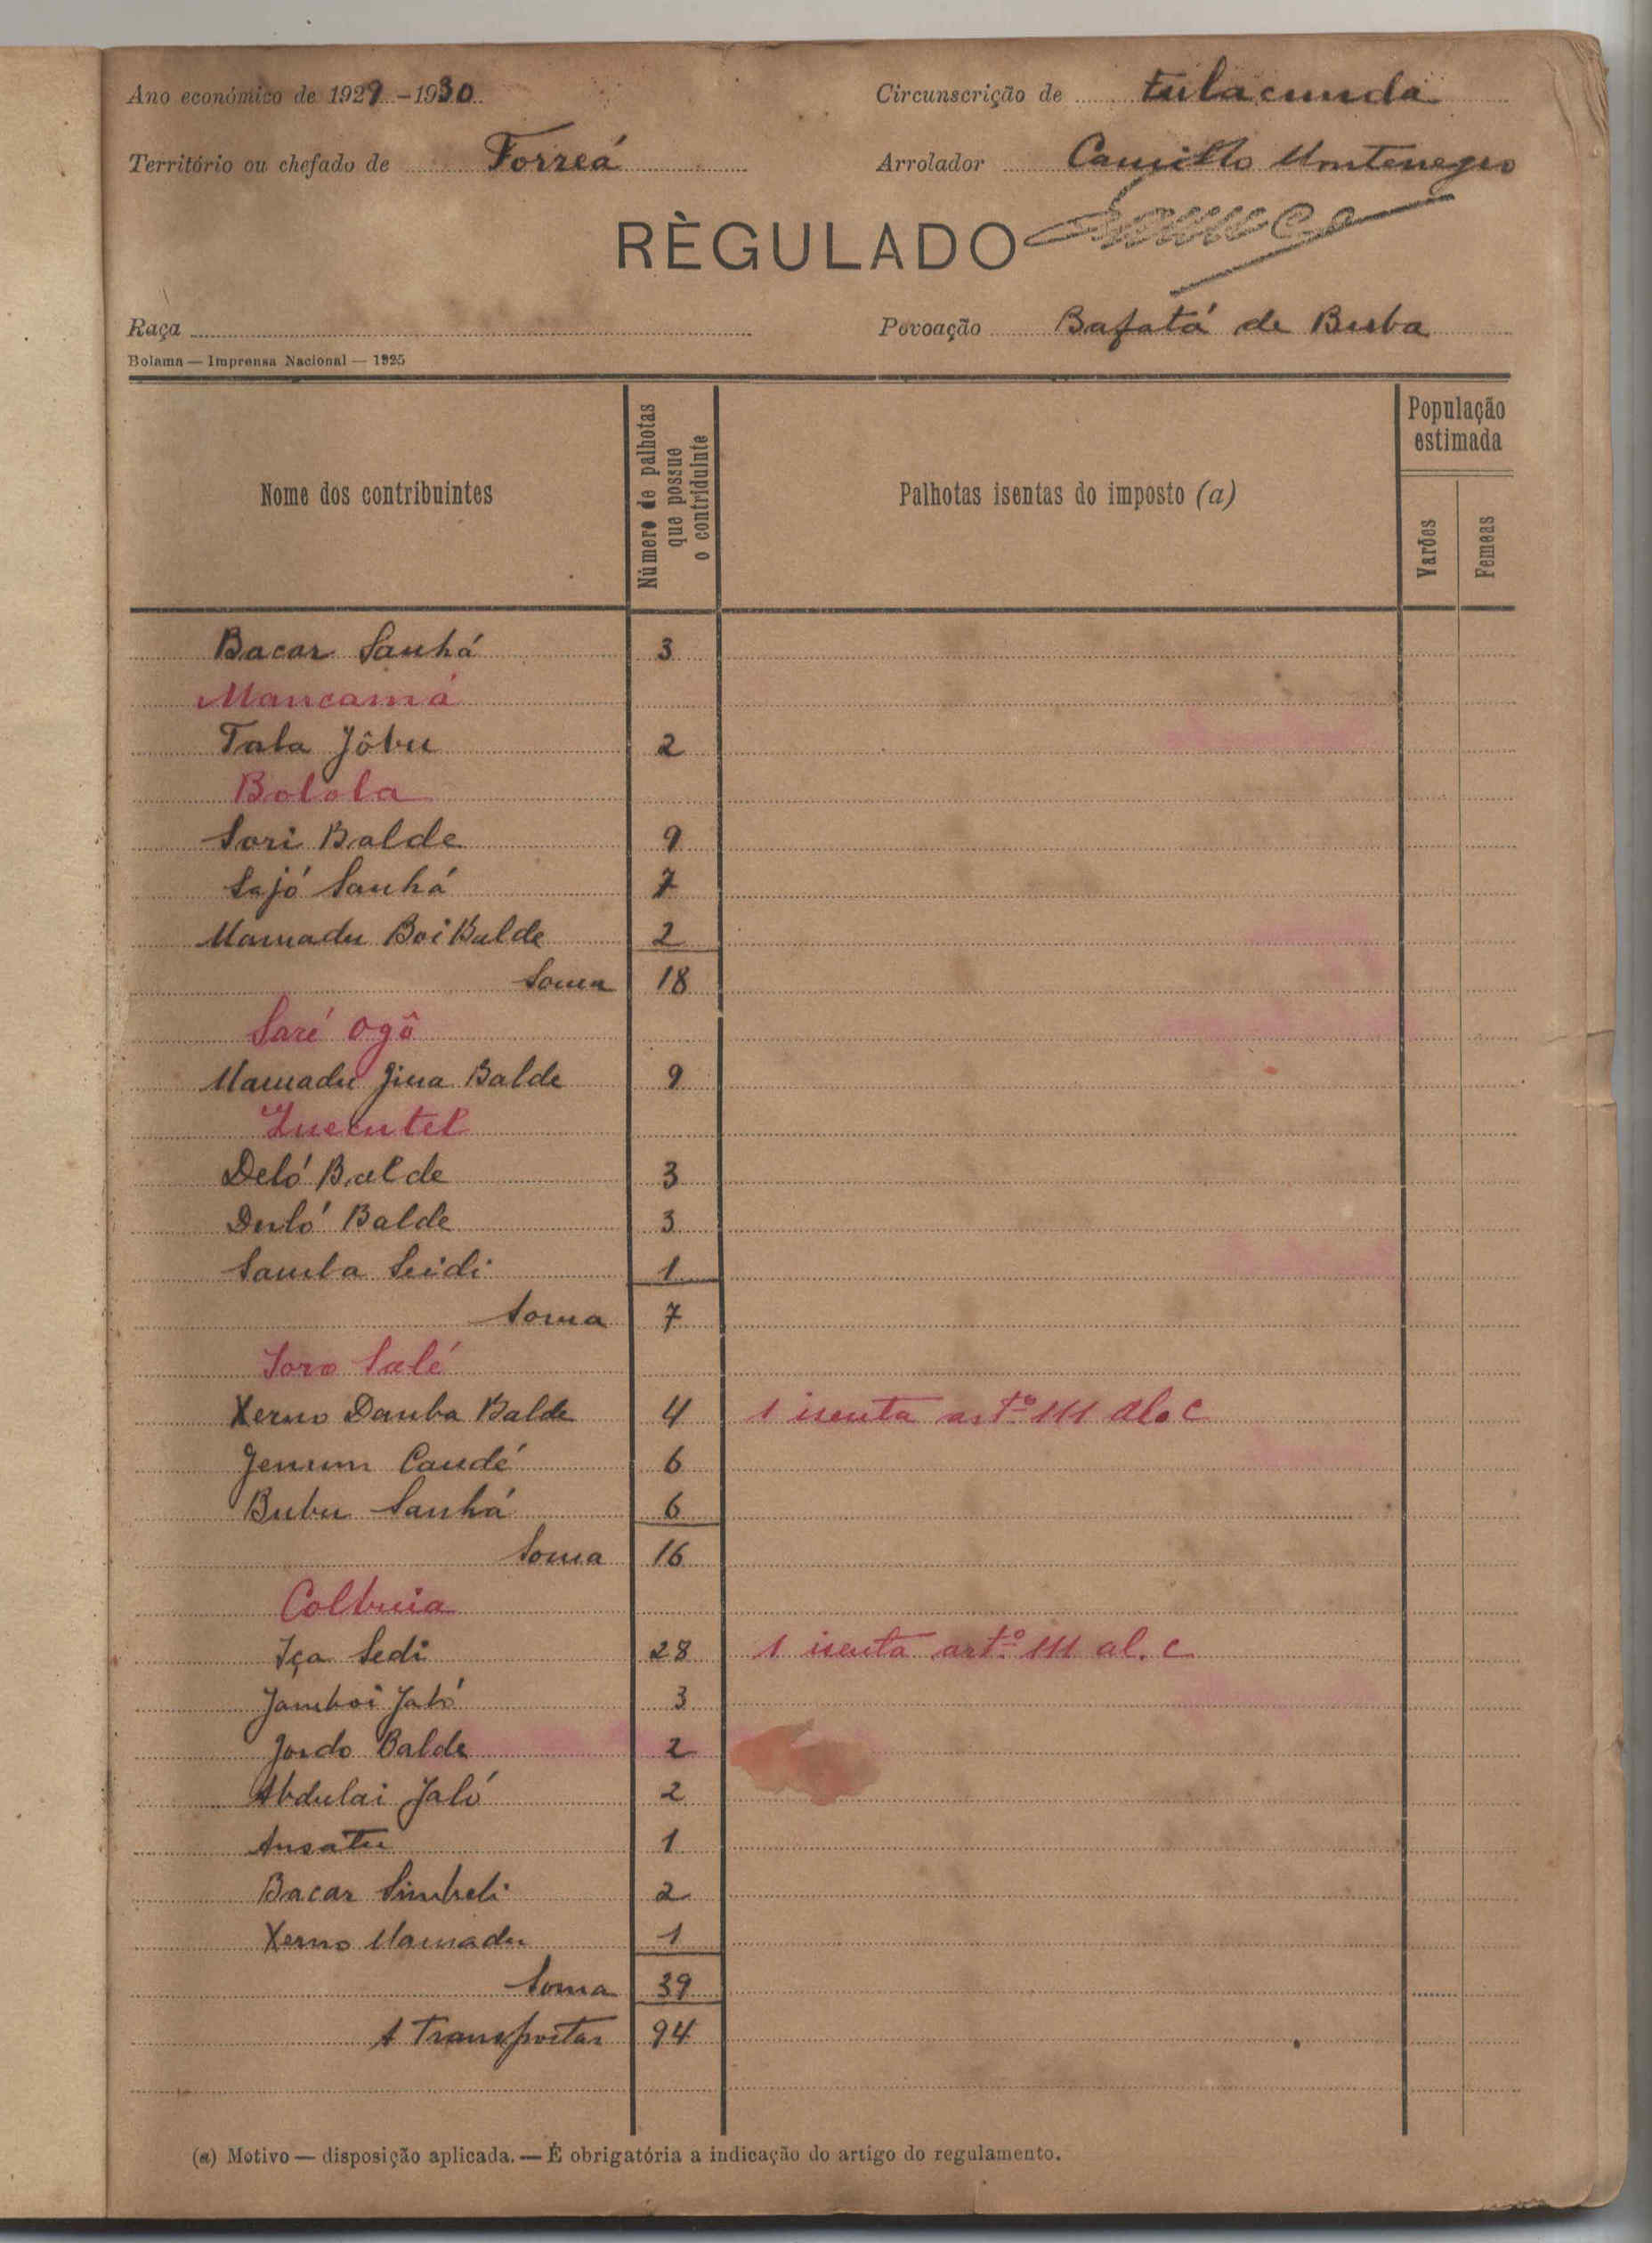 Ano económico de 1929-1930
Circunscrição de Fulacunda
Território ou chefado de Forreá
Arrolador Camillo Montenegro
RÈGULADO
Raça
Povoação Bafatá de Buba
Bolama — Imprensa Nacional — 1925
Nome dos contribuintes
Número de palhotas que possue o contriduinte
Palhotas isentas do imposto (a)
População estimada
Varões
Femeas
Bacar Sanhá 3
Mancamá
Tala Jôbu 2
Bolola
Sori Balde 9
Sajó Sanhá 7
Mamadu Boi Balde 2
Soma 18
Saré Ogô
Mamadu Jina Balde 9
Deló Balde 3
Duló Balde 3
Samba Seidi 1
Soma 7
Soro Salé
Xerno Danba Balde 4 1 isenta artº 111 al. c
Jenum Candé 6
Bubu Sanhá 6
Soma 16
Colbuia
Iça Sedi 28 1 isenta artº 111 al. c
Jamboi Jaló 3
Jordo Balde 2
Abdulai Jaló 2
Ansatu 1
Bacar Simbeli 2
Xerno Mamadu 1
Soma 39
A Transportar 94
(a) Motivo — disposição aplicada. — É obrigatória a indicação do artigo do regulamento.